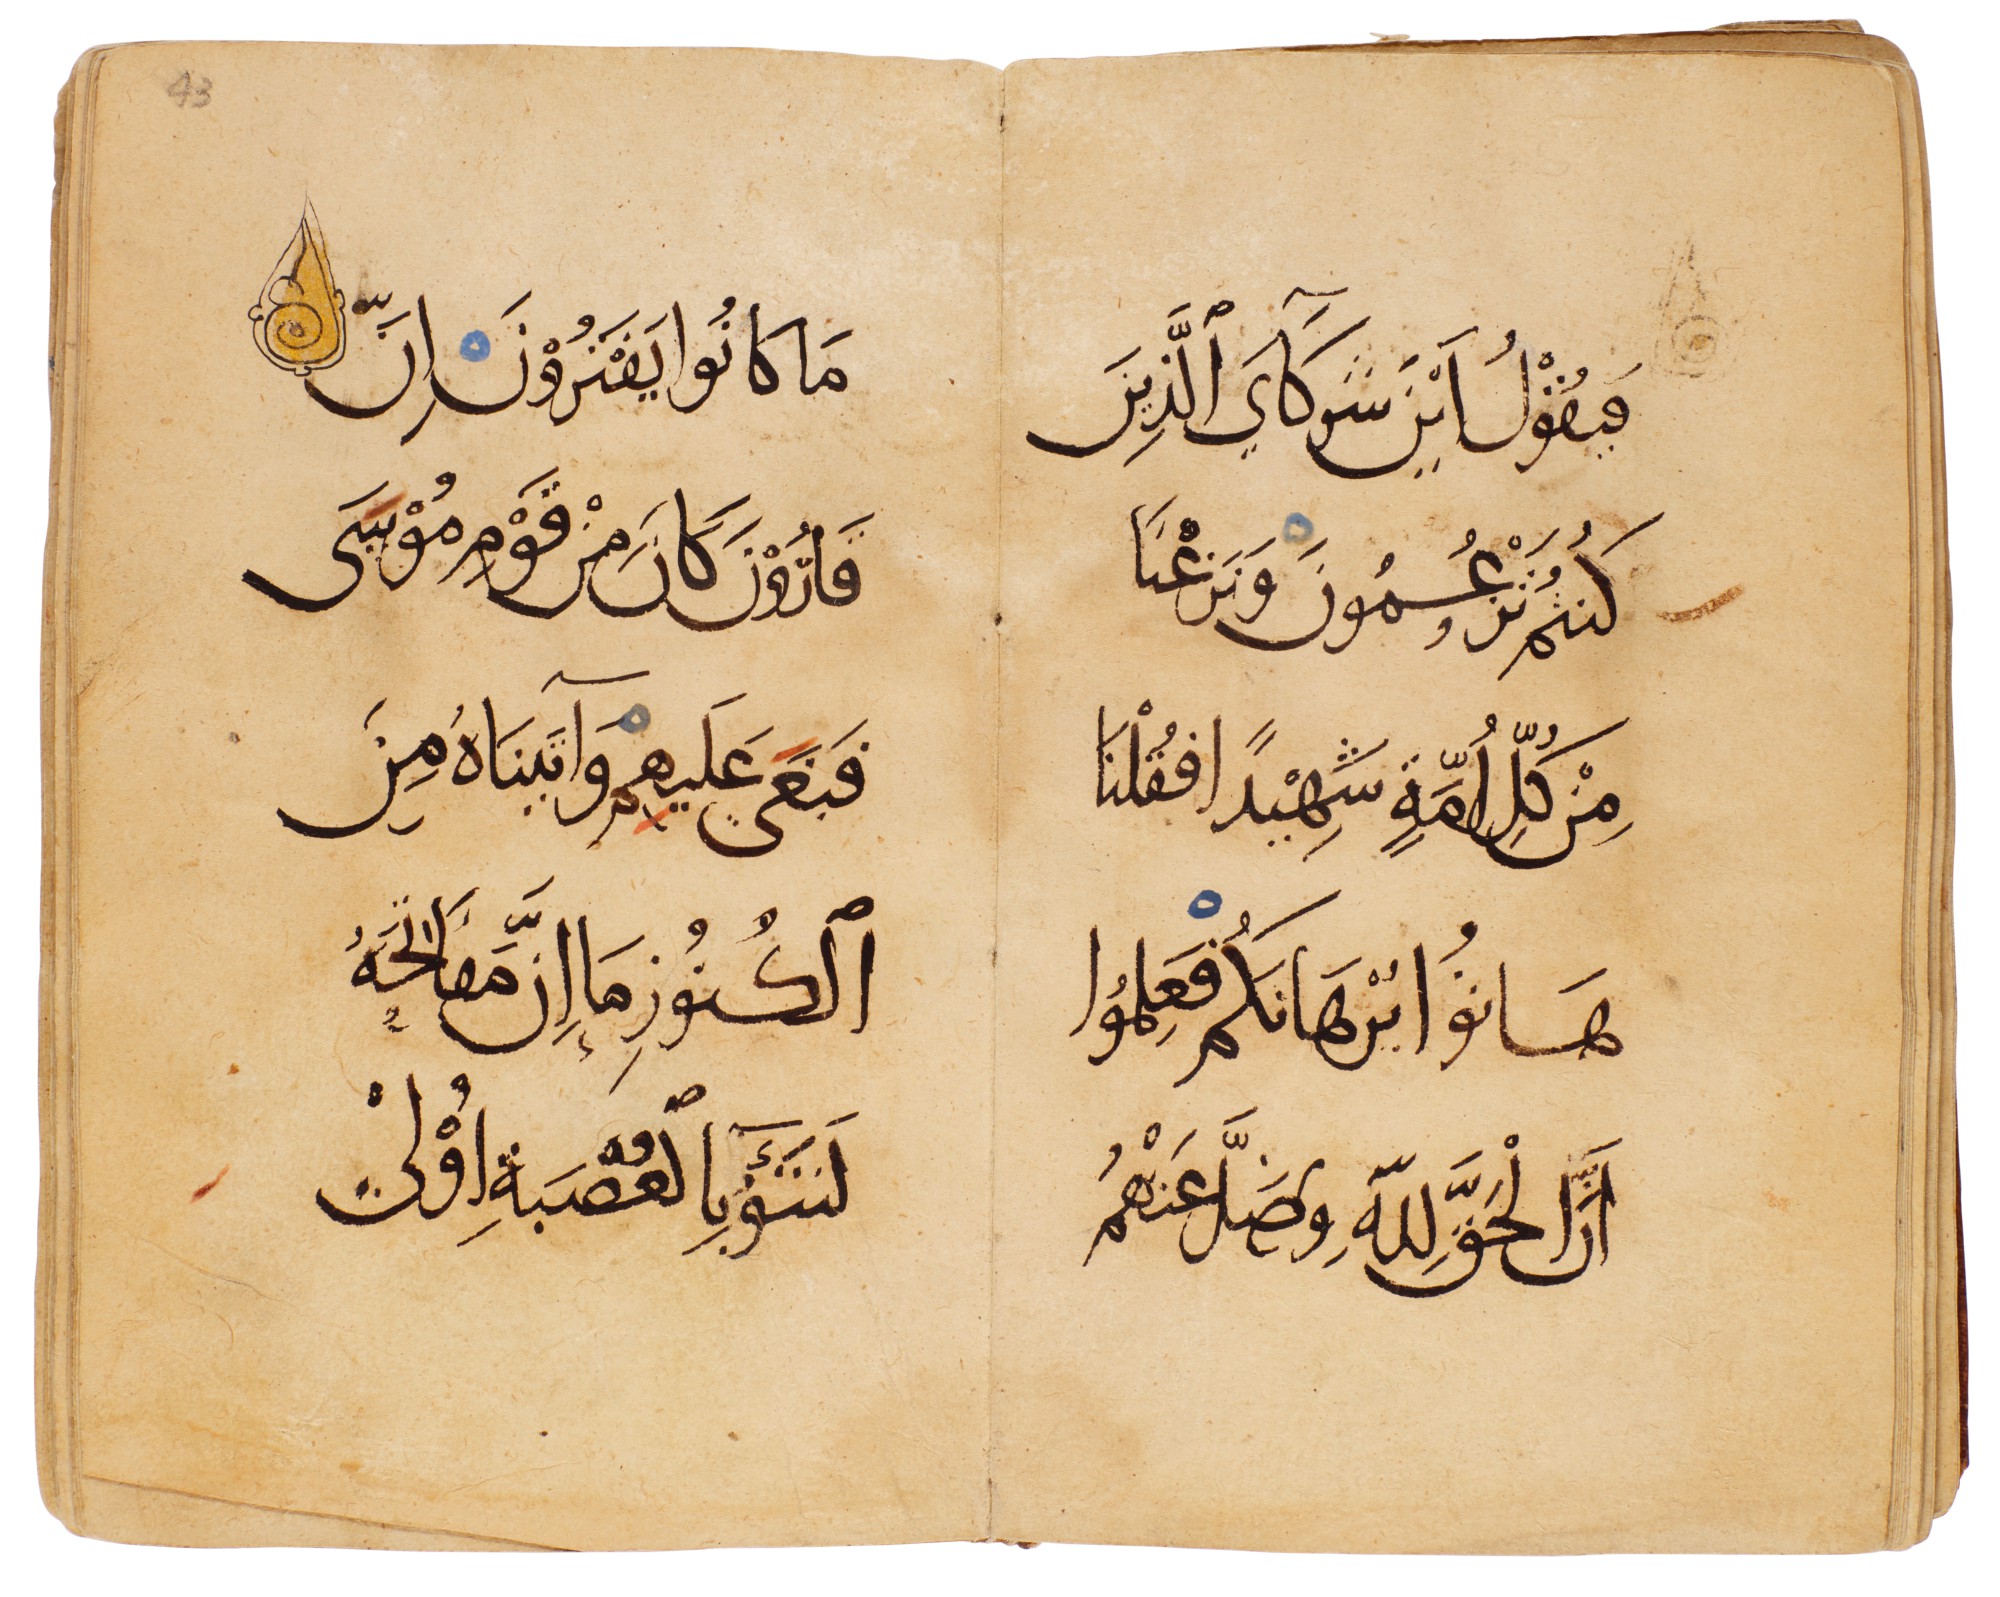 فَيَقُوْلُ اَيْنَ شُرَكَآىَٔ ٱلَّذِينَ
كُنتُمْ تَزْعُمُونَ وَنَزَعْنَا
مِنْ كُلِّ اُمَّةٍ شَهِيْدًا فَقُلْنَا
هَاتُوْا بُرْهَانَكُمْ فَعَلِمُوْا
اَنَّ الْحَقَّ لِلّٰهِ وَضَلَّ عَنْهُمْ
43
مَا كَانُوا يَفْتَرُوْنَ اِنَّ
قَارُوْنَ كَانَ مِنْ قَوْمِ مُوْسَى
فَبَغَى عَلَيهِمْ وَآتَيْنَاهُ مِنَ
ٱلْكُنُوْزِ مَا إِنَّ مَفَاتِحَهُ
لَتَنُوٓأُ بِٱلْعُصْبَةِ اُوْلِىْ